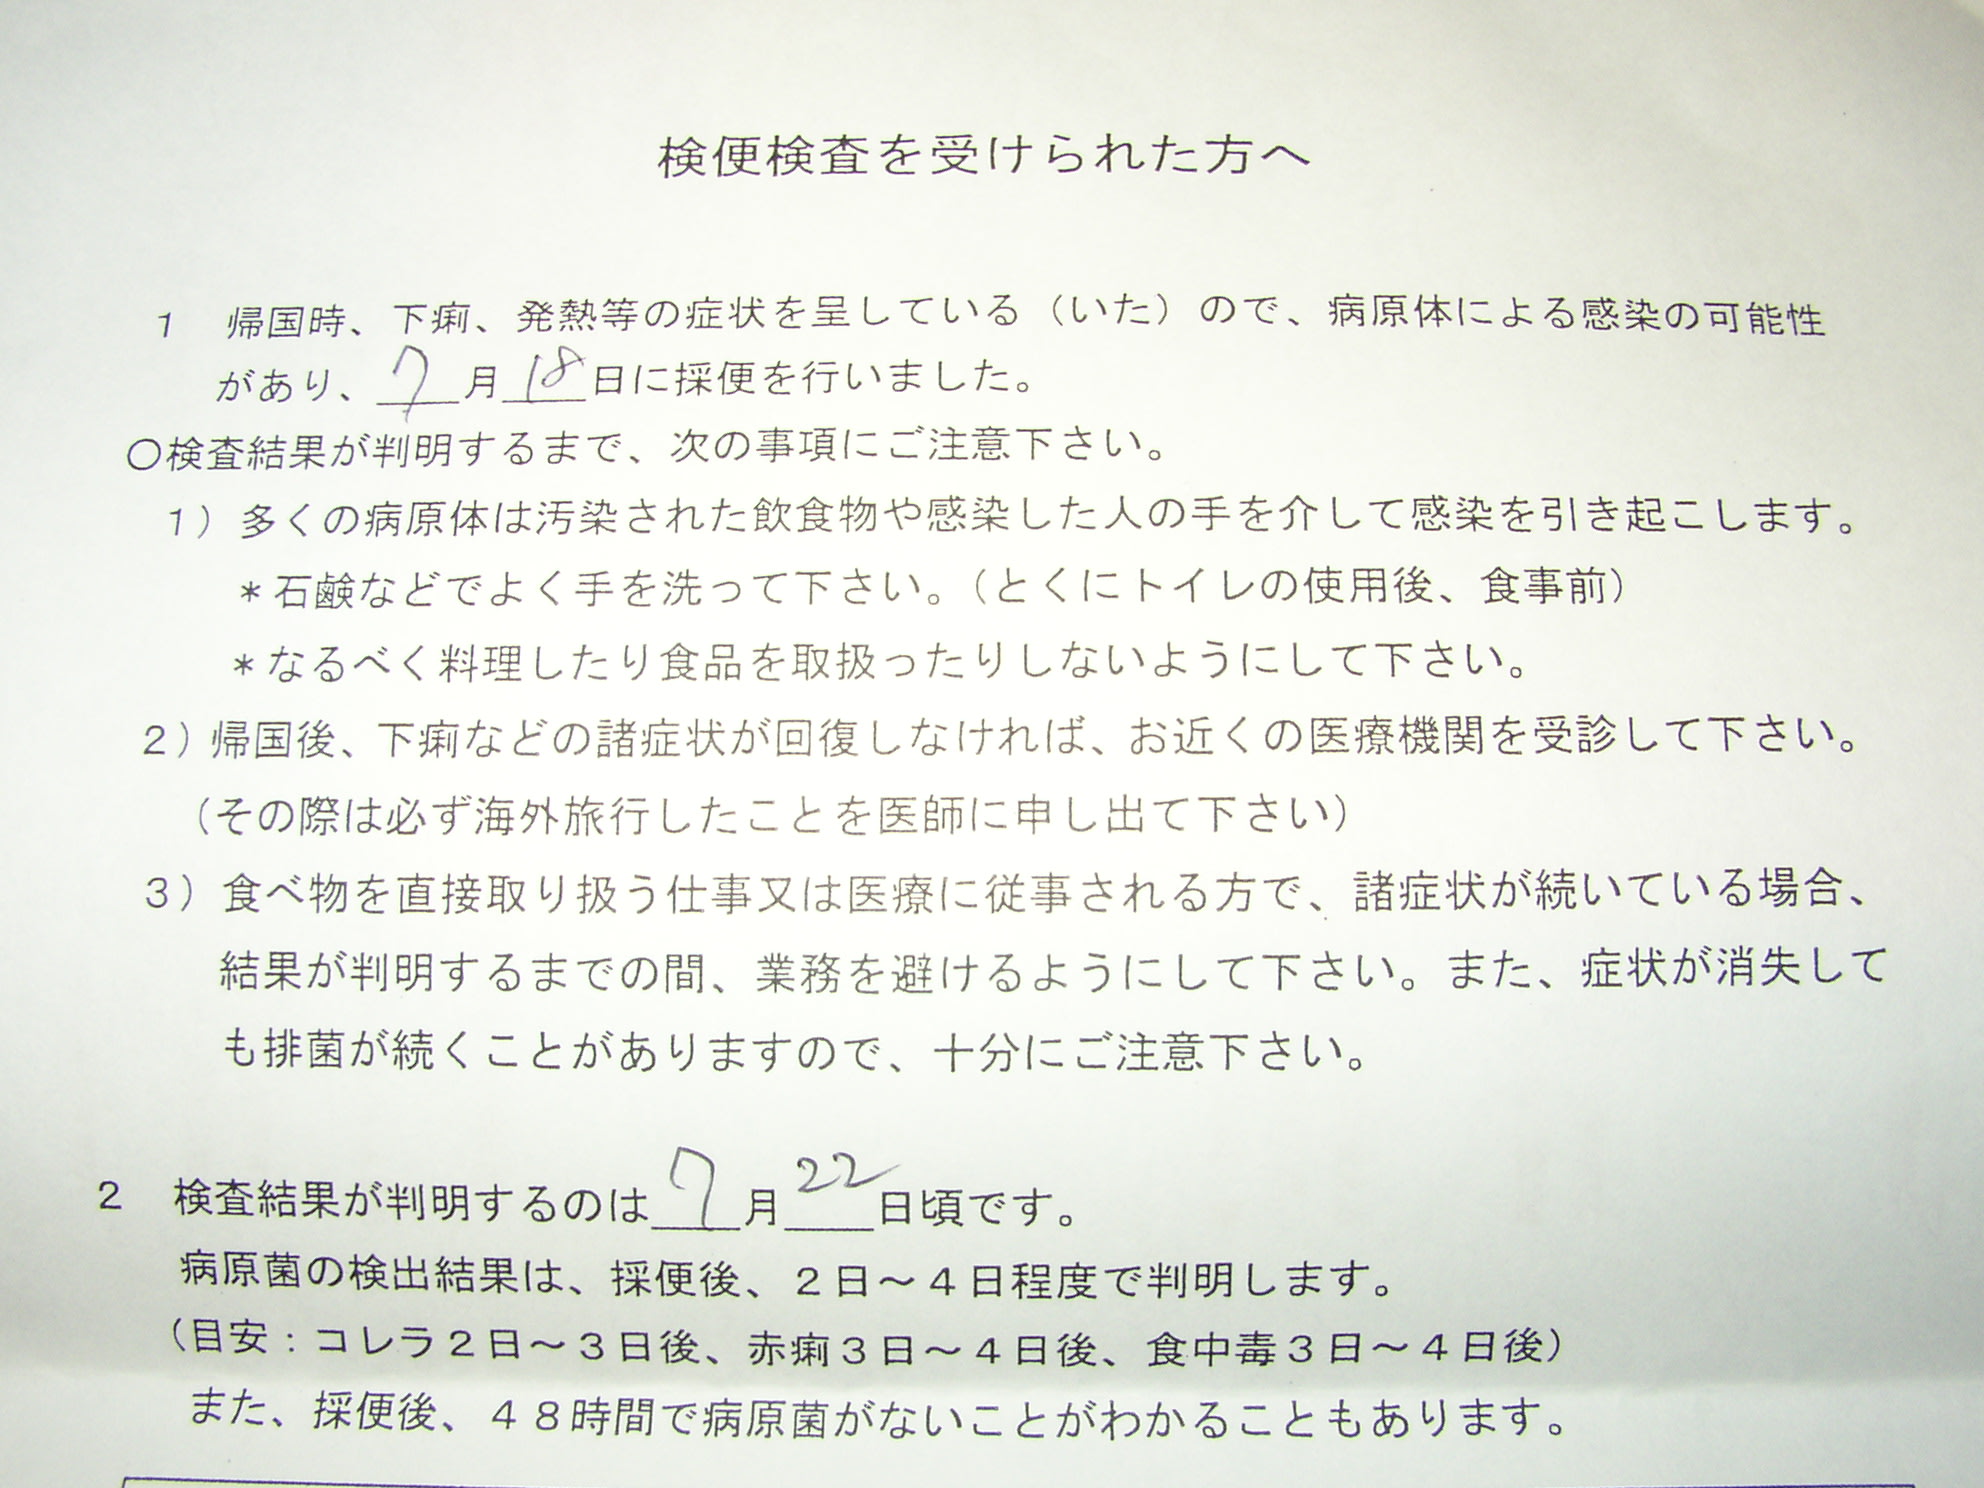 検便検査を受けられた方へ
1 帰国時、下痢、発熱等の症状を呈している（いた）ので、病原体による感染の可能性
があり、7月18日に採便を行いました。
○検査結果が判明するまで、次の事項にご注意下さい。
1）多くの病原体は汚染された飲食物や感染した人の手を介して感染を引き起こします。
＊石鹸などでよく手を洗って下さい。（とくにトイレの使用後、食事前）
＊なるべく料理したり食品を取扱ったりしないようにして下さい。
2）帰国後、下痢などの諸症状が回復しなければ、お近くの医療機関を受診して下さい。
（その際は必ず海外旅行したことを医師に申し出て下さい）
3）食べ物を直接取り扱う仕事又は医療に従事される方で、諸症状が続いている場合、
結果が判明するまでの間、業務を避けるようにして下さい。また、症状が消失して
も排菌が続くことがありますので、十分にご注意下さい。
2 検査結果が判明するのは7月22日頃です。
病原菌の検出結果は、採便後、２日～４日程度で判明します。
（目安：コレラ２日～３日後、赤痢３日～４日後、食中毒３日～４日後）
また、採便後、４８時間で病原菌がないことがわかることもあります。